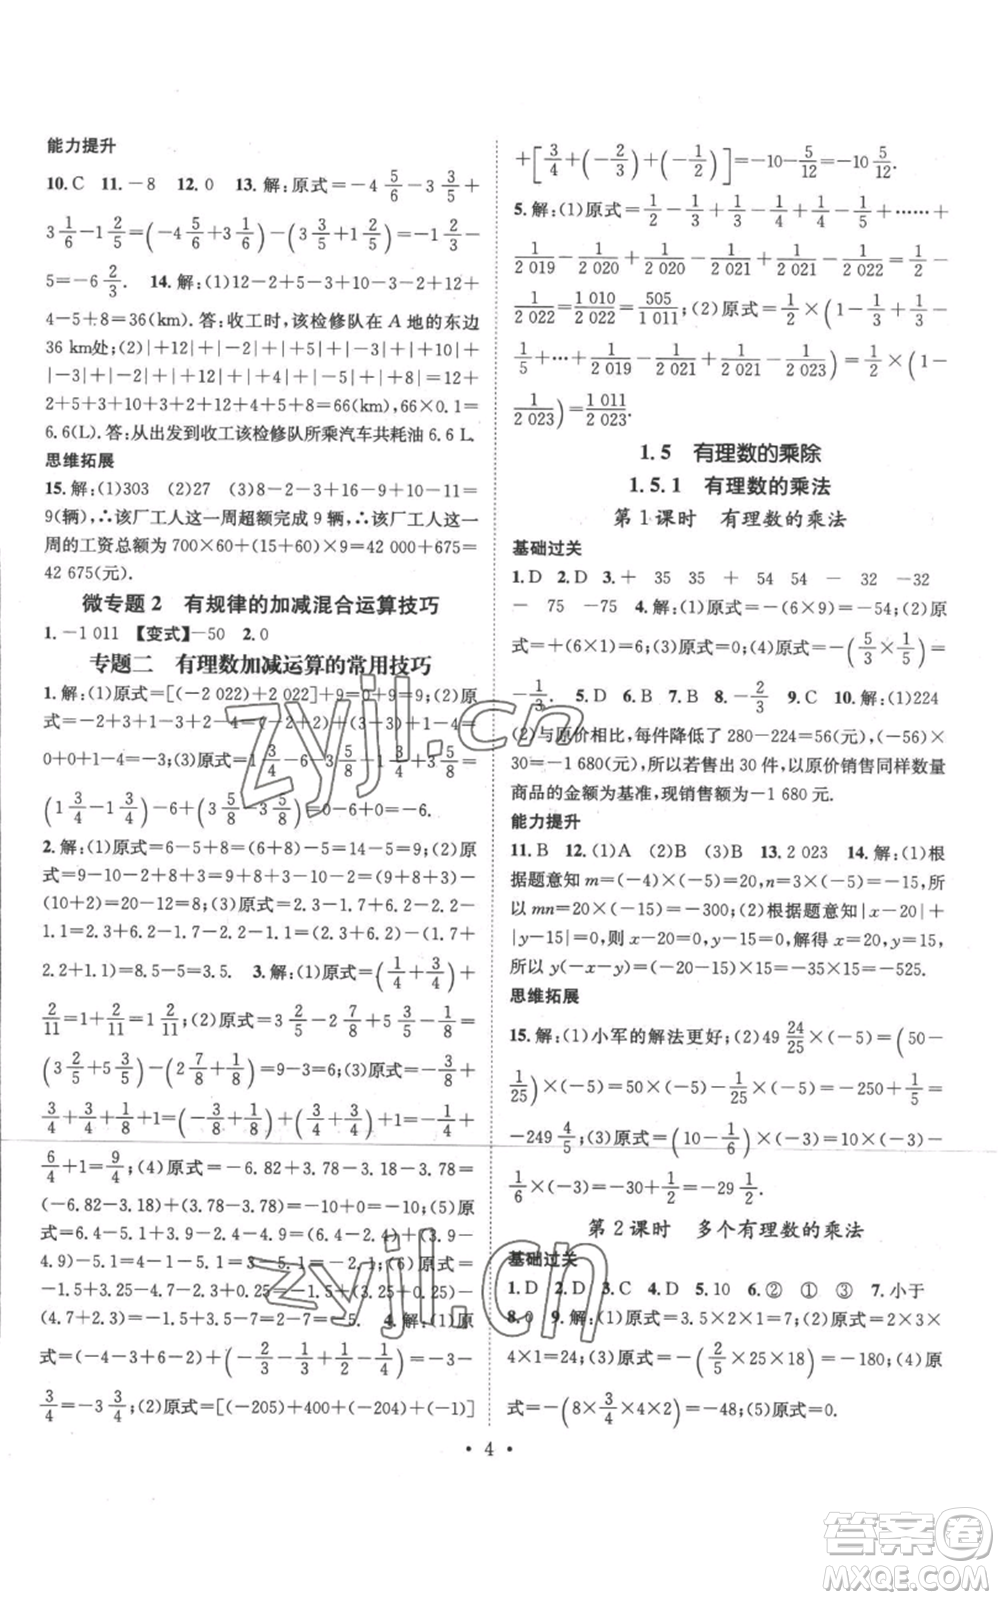 能力提升
10.C 11.－8 12.0 13.解:原式＝－4 5/6－3 3/5＋
3 1/6－1 2/5＝(－4 5/6＋3 1/6)－(3 3/5＋1 2/5)＝－1 2/3－
5＝－6 2/3. 14.解:(1)12－2＋5－3＋10－3＋2＋
4－5＋8＝36(km).答:收工时,该检修队在 A 地的东边
36 km处;(2)|＋12|＋|－2|＋|＋5|＋|－3|＋|＋10|＋
|－3|＋|＋2|＋|＋4|＋|－5|＋|＋8|＝12＋2＋5＋3＋10＋3＋2＋4＋5＋8＝66(km),66×0.1＝
6.6(L).答:从出发到收工该检修队所乘汽车共耗油 6.6 L.
思维拓展
15.解:(1)303 (2)27 (3)8－2－3＋16－9＋10－11＝
9(辆),∴该厂工人这一周超额完成 9 辆,∴该厂工人这一
周的工资总额为 700×60＋(15＋60)×9＝42 000＋675＝
42 675(元).
微专题 2 有规律的加减混合运算技巧
1.－1 011 【变式】－50 2.0
专题二 有理数加减运算的常用技巧
1.解:(1)原式＝[(－2 022)＋2 022]＋9＝0＋9＝9;(2)原
式＝－2＋3＋1－3＋2－4＝(－2＋2)＋(－3＋3)＋1－4＝
0＋0＋1－4＝－3;(3)原式＝1 3/4－6－3 5/8－3/4＋3 5/8＝
(1 3/4－3/4)－6＋(3 5/8－3 5/8)＝1－6＝－6.
2.解:(1)原式＝6－5＋8＝(6＋8)－5＝14－5＝9;(2)原
式＝9－10－2＋8＋10＋2＝(9＋8)＋(10－10)－
(10＋2)＝20－12＝8;(3)原式＝2.3－1.7＋6.2－2.2－
1.1＝2.3＋6.2－1.7－2.2－1.1＝(2.3＋6.2)－(1.7＋
2.2＋1.1)＝8.5－5＝3.5. 3.解:(1)原式＝(1/4＋3/4)＋
2/11＝1＋2/11＝1 2/11;(2)原式＝3 2/5－2 7/8＋5 3/5－1/8＝
(3 2/5＋5 3/5)－(2 7/8＋1/8)＝9－3＝6;(3)原式＝－1/8＋
3/4＋3/4＋1/8＋1＝(－1/8＋1/8)＋(3/4＋3/4)＋1＝
6/4＋1＝9/4;(4)原式＝－6.82＋3.78－3.18－3.78＝
(－6.82－3.18)＋(3.78－3.78)＝－10＋0＝－10;(5)原
式＝6.4－5.1＋3.9－4.9－5.1＝(3.9－
4.9)－(5.1－5.1)＝;(6)原式＝
－1.5＋3.25＋3.75－4.25＝(3.25＋3.75)－
＝－5. 4.解:(1)原
式＝(－4－3＋6－2)＋(－2/3－1/3＋1/2－3/4)＝－3－
3/4＝－3 3/4;(2)原式＝[(－205)＋400＋(－204)＋(－1)]
＋[3/4＋(－2/3)＋(－1/2)]＝－10－5/12＝－10 5/12.
5.解:(1)原式＝1/2－1/3＋1/3－1/4＋1/4－1/5＋……＋
1/2 019－1/2 020＋1/2 020－1/2 021＋1/2 021－1/2 022＝1/2－
1/2 022＝1 010/2 022＝505/1 011;(2)原式＝1/2×(1－1/3＋1/3－
1/5＋…＋1/2 019－1/2 021＋1/2 021－1/2 023)＝1/2×(1－
1/2 023)＝1 011/2 023.
1.5 有理数的乘除
1.5.1 有理数的乘法
第 1 课时 有理数的乘法
基础过关
1.D 2.D 3.＋ 35 35 ＋ 54 54 － 32
－32 － 75 －75 4.解:(1)原式＝－(6×9)＝－54;(2)原
式＝0;(3)原式＝＋(6×1/4)＝3/2;(4)原式＝－(5/3×1/5)＝
－1/3. 5.D 6.B 7.B 8.－2/3 9.C 10.解:(1)224
(2)与原价相比,每件降低了 280－224＝56(元),(－56)×
30＝－1 680(元),所以若售出 30 件,以原价销售同样数量
商品的金额为基准,现销售额为－1 680 元.
能力提升
11.B 12.(1)A (2)B (3)B 13.2 023 14.解:(1)根
据题意知 m＝(－4)×(－5)＝20,n＝3×(－5)＝－15,所
以 mn＝20×(－15)＝－300;(2)根据题意知|x－20|＋
|y－15|＝0,则 x－20＝0,y－15＝0,解得 x＝20,y＝15,
所以 y(－x－y)＝15×(－20－15)＝15×(－35)＝－525.
思维拓展
15.解:(1)小军的解法更好;(2)49 24/25×(－5)＝(50－
1/25)×(－5)＝50×(－5)－1/25×(－5)＝－250＋1/5＝
－249 4/5;(3)原式＝(10－1/6)×(－3)＝10×(－3)－
1/6×(－3)＝－30＋1/2＝－29 1/2.
第 2 课时 多个有理数的乘法
基础过关
1.D 2.D 3.C 4.D 5.10 6.② ① ③ 7.小于
8.0 9.解:(1)原式＝3.5×2×1＝7;(2)原式＝2×3×
4×1＝24;(3)原式＝－(2/5×25×18)＝－180;(4)原
式＝－(8×3/4×4×2)＝－48;(5)原式＝0.
· 4 ·
zyjl.cn
zyjl.cn
答案圈
MXQE.COM